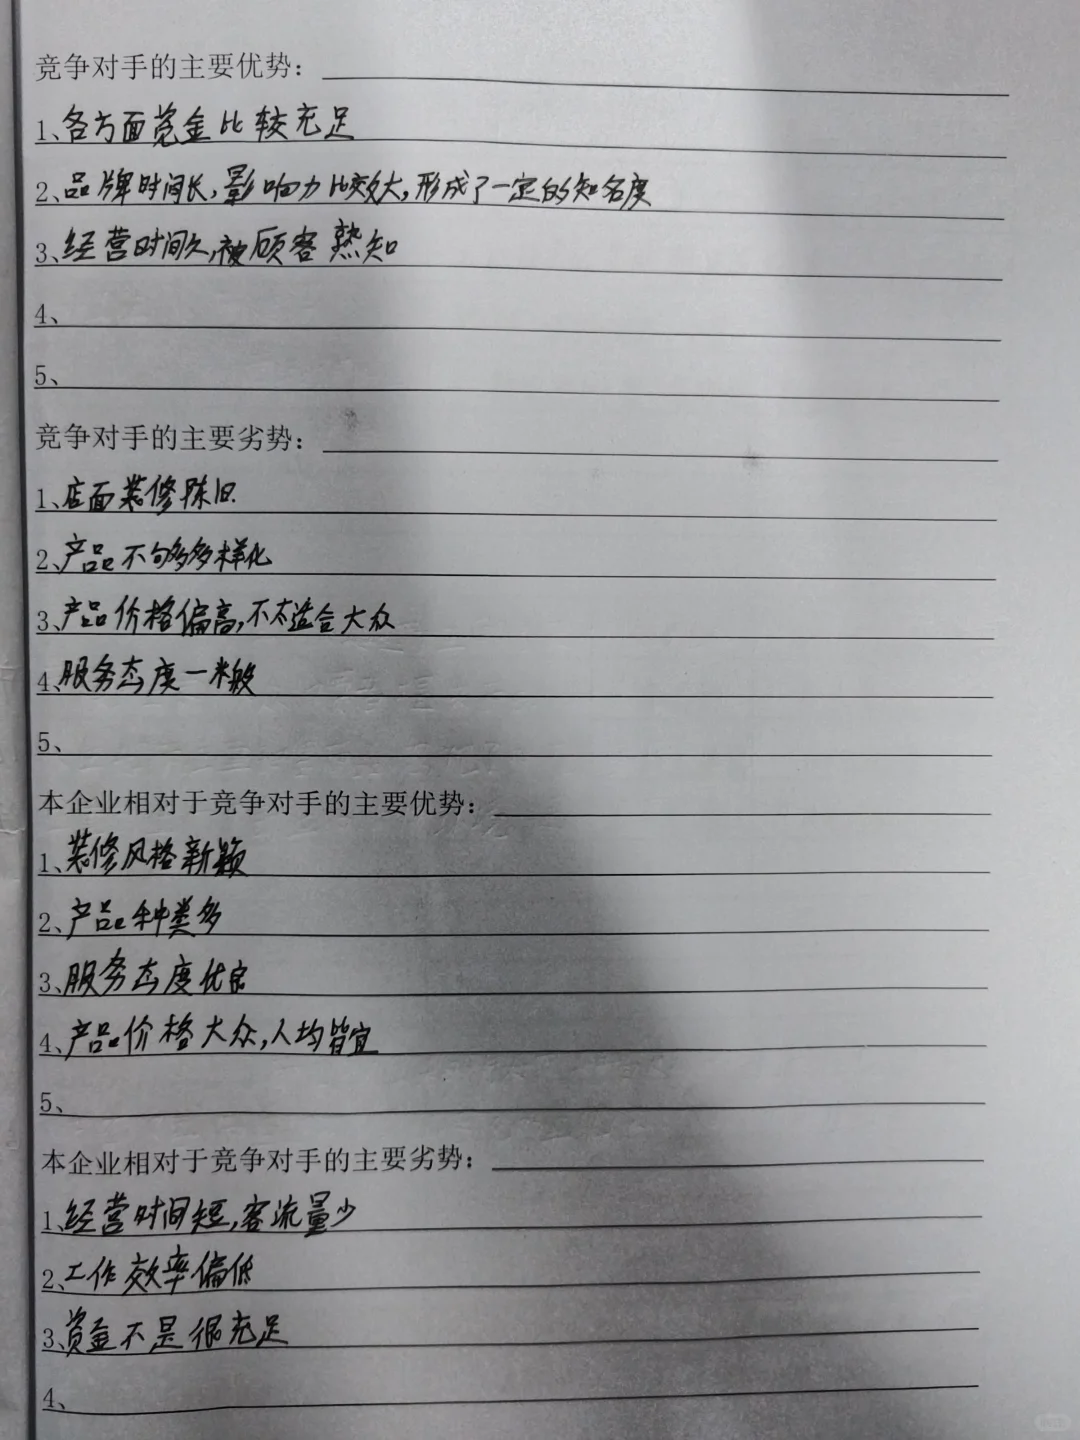 竞争对手的主要优势：
1、各方面资金比较充足
2、品牌时间长，影响力比较大，形成了一定的知名度
3、经营时间久，被顾客熟知
4、
5、
竞争对手的主要劣势：
1、店面装修陈旧.
2、产品不够多多样化
3、产品价格偏高，不太适合大众
4、服务态度一般
5、
本企业相对于竞争对手的主要优势：
1、装修风格新颖
2、产品种类多
3、服务态度优良
4、产品价格大众，人均皆宜
5、
本企业相对于竞争对手的主要劣势：
1、经营时间短，客流量少
2、工作效率偏低
3、资金不是很充足
4、